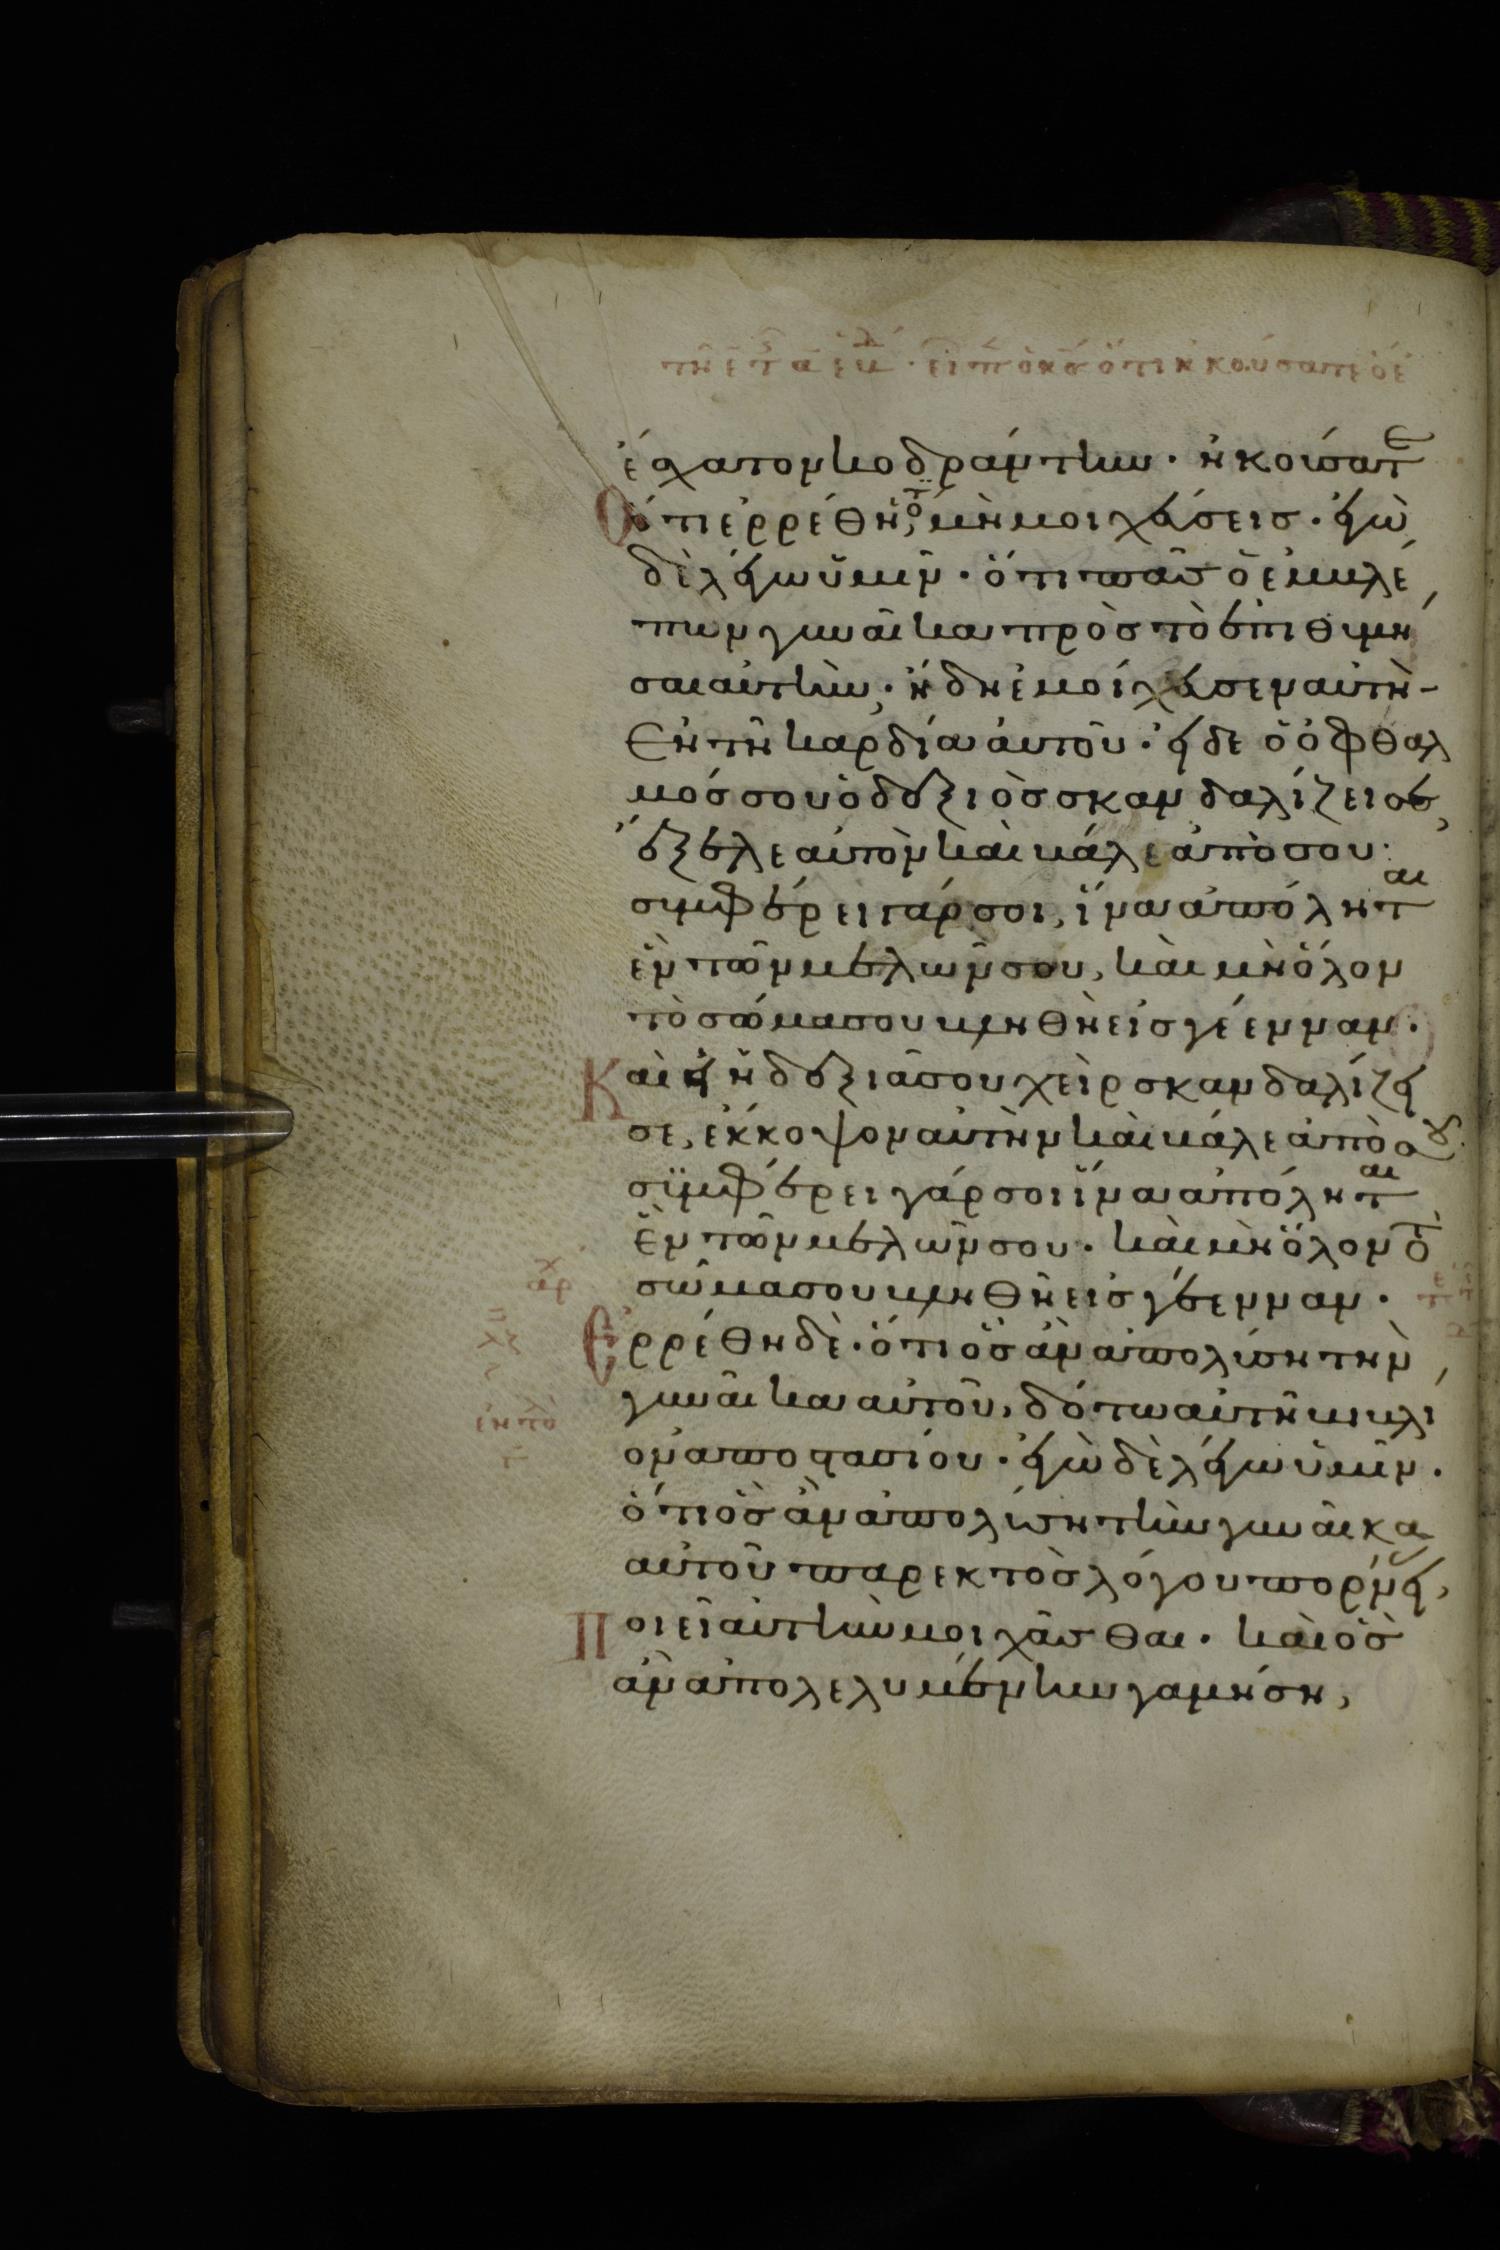 ἔσχατον κοδράντην· ἠκούσατε
ὅτι ἐρρέθη, μὴ μοιχεύσεις· ἐγὼ
δὲ λέγω ὑμῖν· ὅτι πᾶς ὁ ἐμβλέ
πων γυναῖκα πρὸς τὸ ἐπιθυμῆ
σαι αὐτὴν, ἤδη ἐμοίχευσεν αὐτὴ-
ἐν τῆ καρδία αὐτοῦ· εἰ δε ὁ ὀφθαλ
μός σου ὁ δεξιὸς σκανδαλίζει σε,
ἔξελε αὐτὸν καὶ βάλε ἀπὸ σοῦ·
συμφέρει γάρ σοι, ἵνα ἀπόληται
ἓν τῶν μελῶν σου, καὶ μὴ ὅλον
τὸ σῶμα σου βληθῆ εἰς γέενναν·
Καὶ εἰ ἡ δεξιᾶ σου χεὶρ σκανδαλίζει
σε, ἔκκοψον αὐτὴν καὶ βάλε ἀπὸ σοῦ·
συμφέρει γάρ σοι ἵνα ἀπόληται
ἓν τῶν μελῶν σου· καὶ μὴ ὅλον τὸ
σῶμα σου βληθῆ εἰς γέενναν·
Ἐρρέθη δὲ· ὅτι ὃς ἂν ἀπολύση τὴν
γυναῖκα αὐτοῦ, δότω αὐτῆ βιβλί
ον ἀποστασίου· ἐγὼ δὲ λέγω ὑμῖν·
ὅτι ὃς ἂν ἀπολύση τὴν γυναῖκα
αὐτοῦ παρεκτὸς λόγου πορνείας,
Ποιεῖ αὐτὴν μοιχᾶσθαι· καὶ ὃς
ἂν ἀπολελυμένην γαμήση,